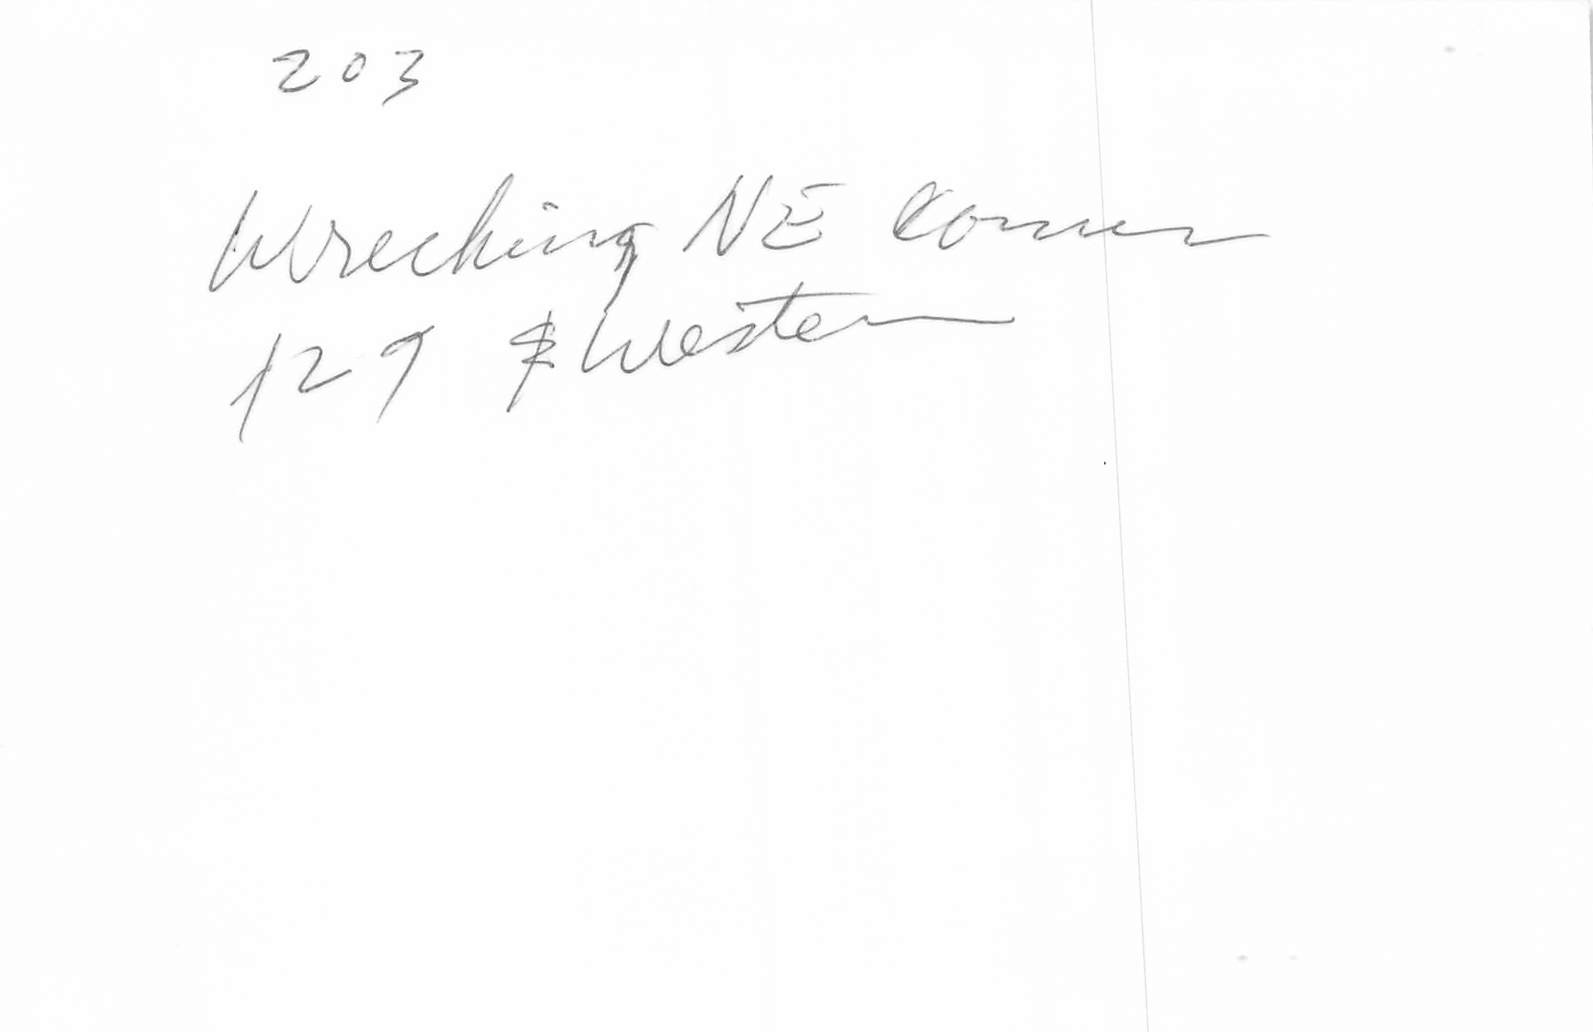 203
Wrecking NE Corner
129 & Western